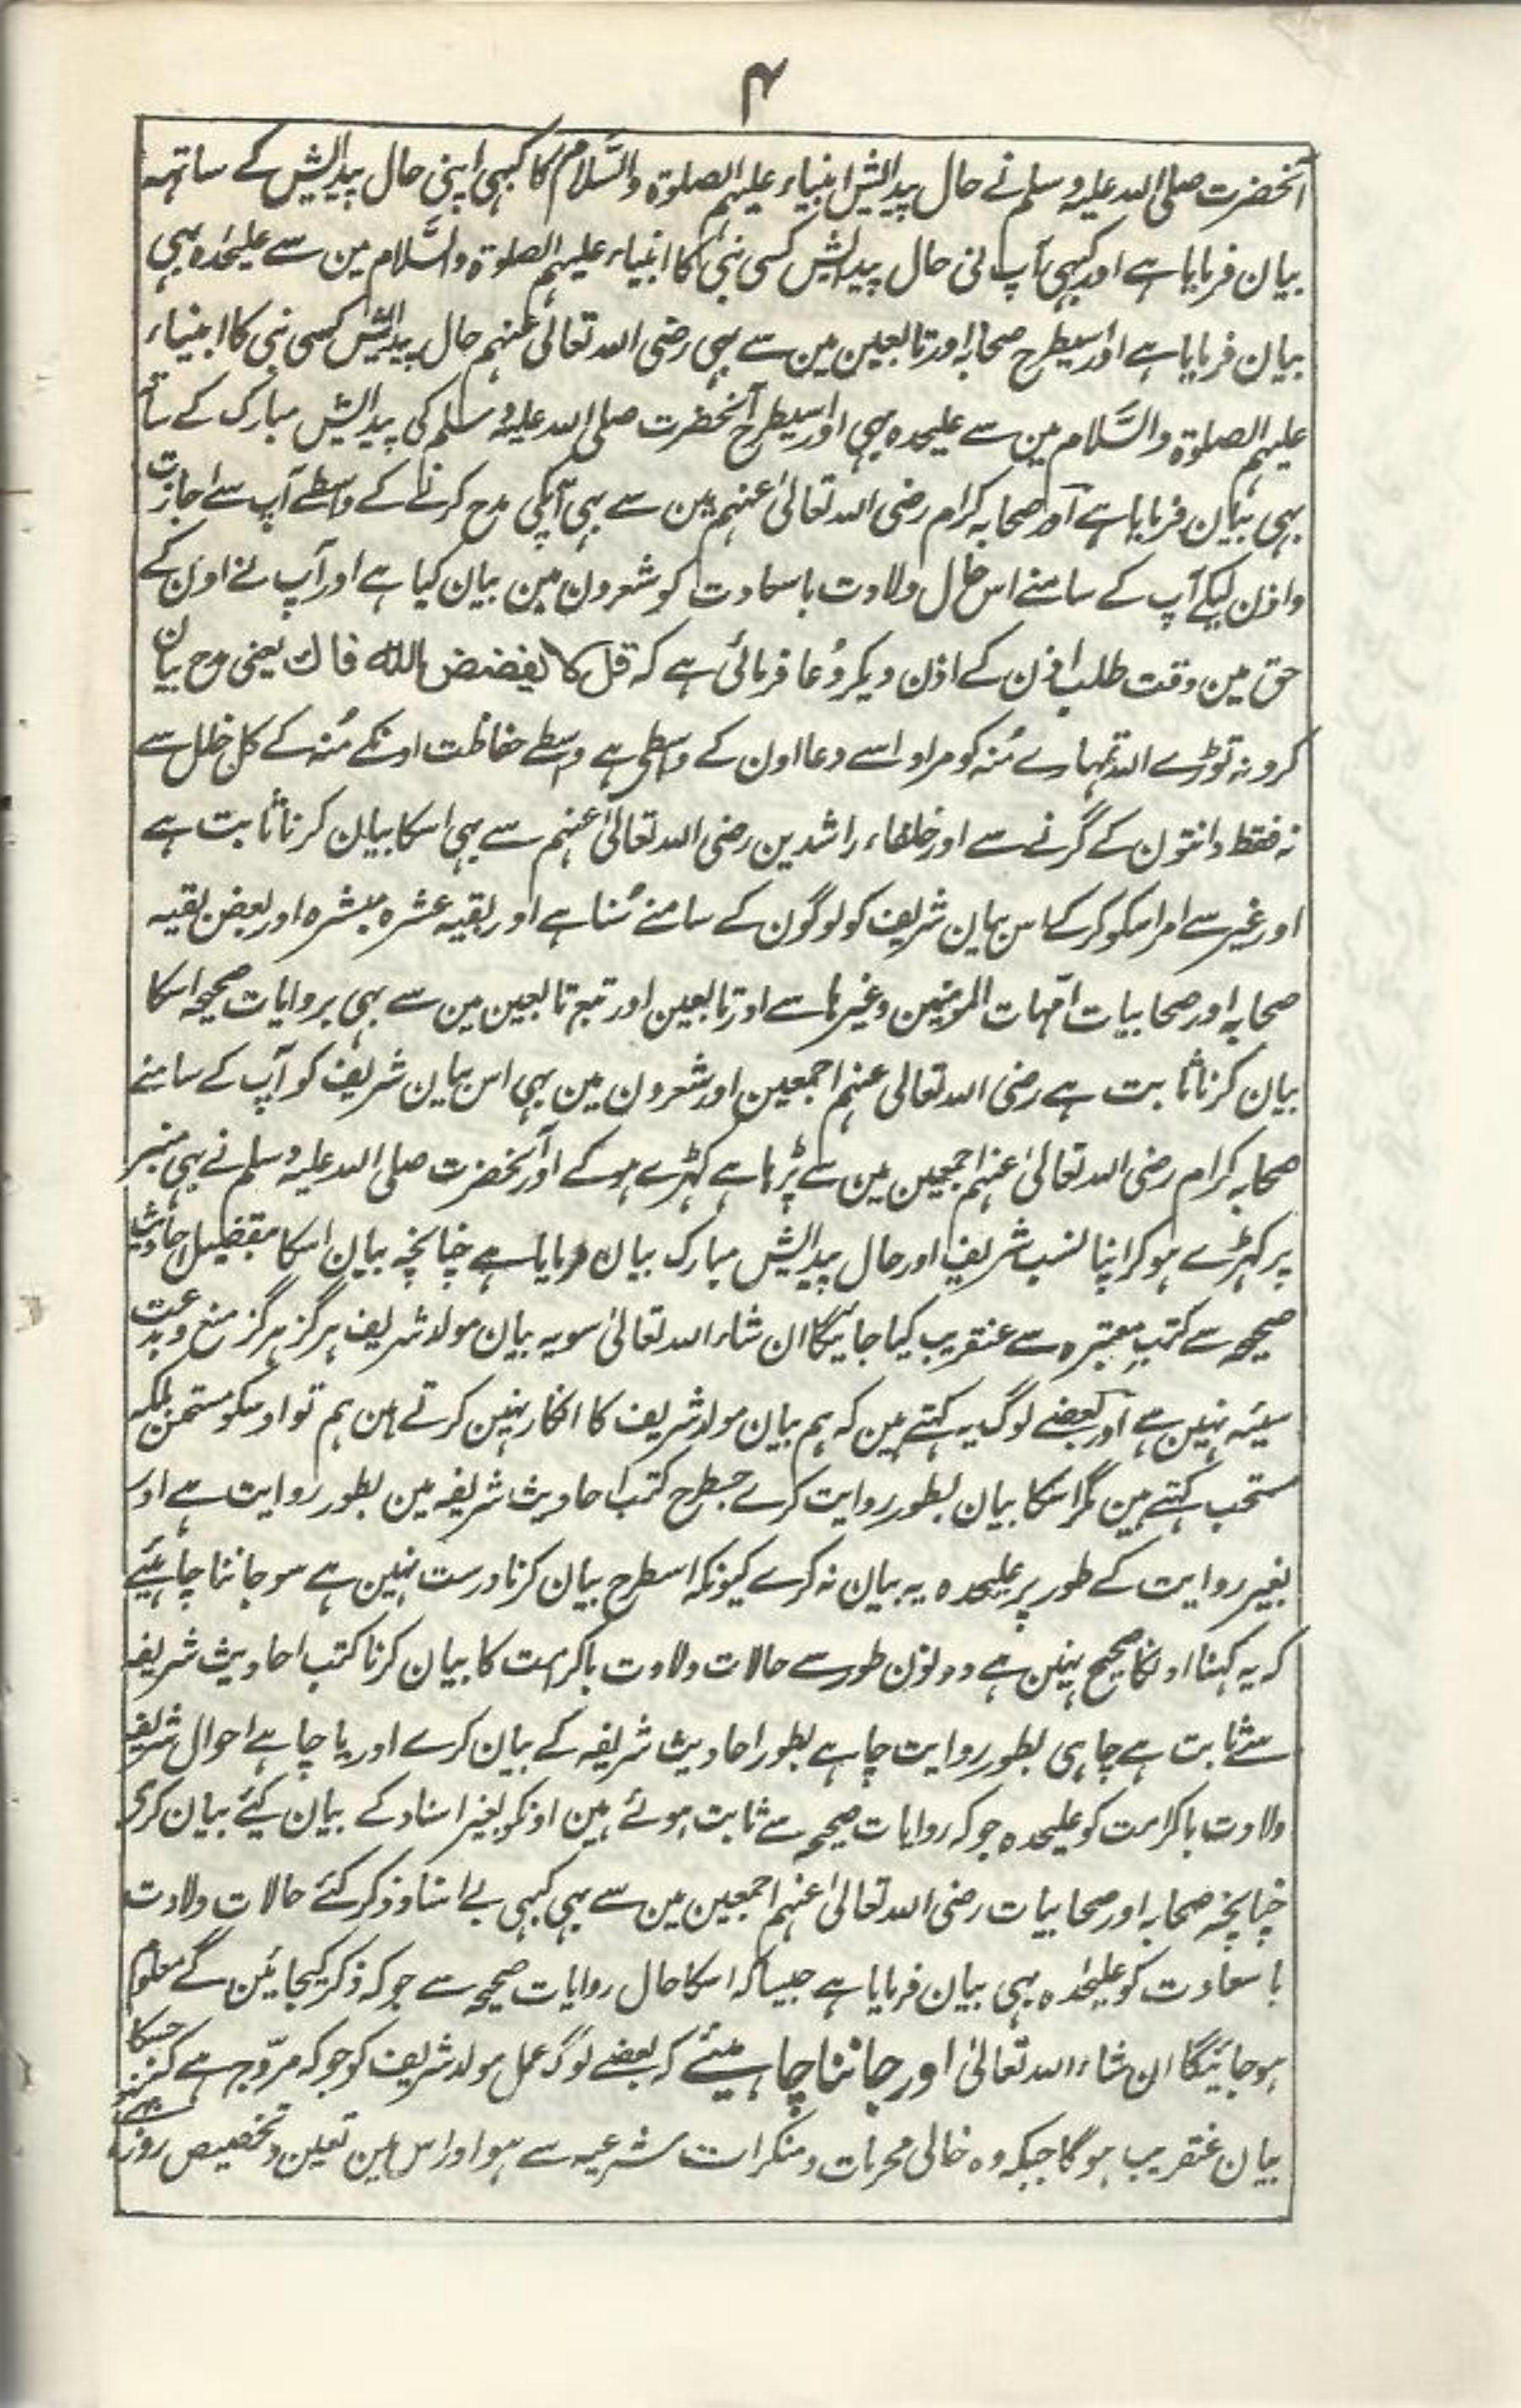 ۴
آنحضرت صلی اللہ علیہ وسلم نے حال پیدایش انبیاء علیہم الصلوۃ والسَّلام کا کبہی اپنی حال پیدایش کے ساتہہ
بیان فرمایا ہے اور کبہی آپ نی حال پیدایش کسی نبی کا انبیاء علیہم الصلوۃ والسَّلام مین سے علیحدہ بہی
بیان فرمایا ہے اور اسیطرح صحابہ اور تابعین مین سے بہی رضی اللہ تعالیٰ عنہم حال پیدایش کسی نبی کا انبیاء
علیہم الصلوۃ والسَّلام مین سے علیحدہ بہی اور اسیطرح آنحضرت صلی اللہ علیہ وسلم کی پیدایش مبارک کے ساتہ
بہی بیان فرمایا ہے اور صحابہ کرام رضی اللہ تعالیٰ عنہم مین سے بہی آپکی مدح کرنے کے واسطے آپ سے اجازت
واذن لیکے آپ کے سامنے اس حال ولادت باسعادت کو شعرون مین بیان کیا ہے اور آپ نے اون کے
حق مین وقت طلب اذن کے اذن دیکر دُعا فرمائی ہے کہ قل لا یفضض اللہ فاك یعنی مدح بیان
کرو نہ توڑے اللہ تمہارے مُنہ کو مراد اسے دعا اون کے واسطی ہے واسطے حفاظت اونکے مُنہ کے کل خلل سے
نہ فقط دانتون کے گرنے سے اور خلفاء راشدین رضی اللہ تعالیٰ عنہم سے بہی اسکا بیان کرنا ثابت ہے
اور غیر سے امر اسکو کرکے اس بیان شریف کو لوگون کے سامنے سُنا ہے اور بقیہ عشرہ مبشرہ اور بعض بقیہ
صحابہ اور صحابیات امّہات المومنین وغیرہا سے اور تابعین اور تبع تابعین مین سے بہی بروایات صحیحہ اسکا
بیان کرنا ثابت ہے رضی اللہ تعالی عنہم اجمعین اور شعرون مین بہی اس بیان شریف کو آپ کے سامنے
صحابہ کرام رضی اللہ تعالیٰ عنہم اجمعین مین سے پڑہا ہے کہڑے ہوکے اور آنحضرت صلی اللہ علیہ وسلم نے بہی منبر
پر کہڑے ہوکر اپنا نسب شریف اور حال پیدایش مبارک بیان فرمایا ہے چنانچہ بیان اسکا مفصیل احادیث
صحیحہ سے کتب معتبرہ سے عنقریب کیا جائیگا ان شاء اللہ تعالیٰ سو یہ بیان مولد شریف ہرگز ہرگز منع وبدعت
سیئہ نہین ہے اور بعضے لوگ یہ کہتے ہین کہ ہم بیان مولد شریف کا انکار نہین کرتے ہین ہم تو اوسکو مستحسن بلکہ
مستحب کہتے ہین مگر اسکا بیان بطور روایت کرے جسطرح کتب احادیث شریفہ مین بطور روایت ہے اور
بغیر روایت کے طور پر علیحدہ یہ بیان نہ کرے کیونکہ اسطرح بیان کرنا درست نہین ہے سو جاننا چاہئیے
کہ یہ کہنا اونکا صحیح نہین ہے دونون طور سے حالات ولادت باکرامت کا بیان کرنا کتب احادیث شریفہ
سے ثابت ہے چاہی بطور روایت چاہے بطور احادیث شریفہ کے بیان کرے اور یا چاہے احوال شریفہ
ولادت باکرامت کو علیحدہ جو کہ روایات صحیحہ سے ثابت ہوئے ہین اونکو بغیر اسناد کے بیان کیئے بیان کری
چنانچہ صحابہ اور صحابیات رضی اللہ تعالیٰ عنہم اجمعین مین سے بہی کبہی بے اسناد ذکر کئے حالات ولادت
باسعادت کو علیحدہ بہی بیان فرمایا ہے جیسا کہ اسکا حال روایات صحیحہ سے جو کہ ذکر کیجائین گے معلوم
ہوجائیگا ان شاء اللہ تعالیٰ اور جاننا چاہیئے کہ بعضے لوگ عمل مولد شریف کو جو کہ مروّج ہے جسکا
بیان عنقریب ہوگا جبکہ وہ خالی محرمات ومنکرات شرعیہ سے ہو اور اس مین تعین وتخصیص روز